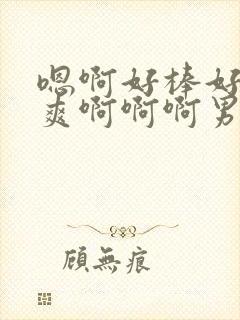 嗯啊好棒好
爽啊啊啊男
顾無痕